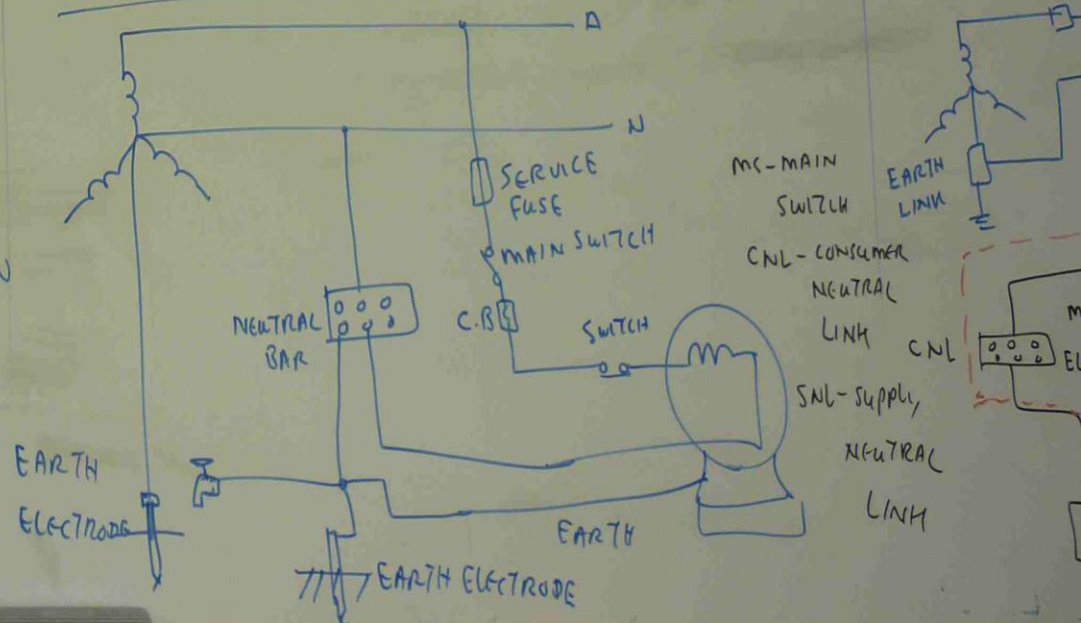 A
N
SERVICE
FUSE
MAIN SWITCH
C.B
SWITCH
NEUTRAL
BAR
EARTH
ELECTRODE
EARTH ELECTRODE
EARTH
MS-MAIN
SWITCH
CNL-CONSUMER
NEUTRAL
LINK
SNL-SUPPLY
NEUTRAL
LINK
EARTH
LINK
CNL
M
EL